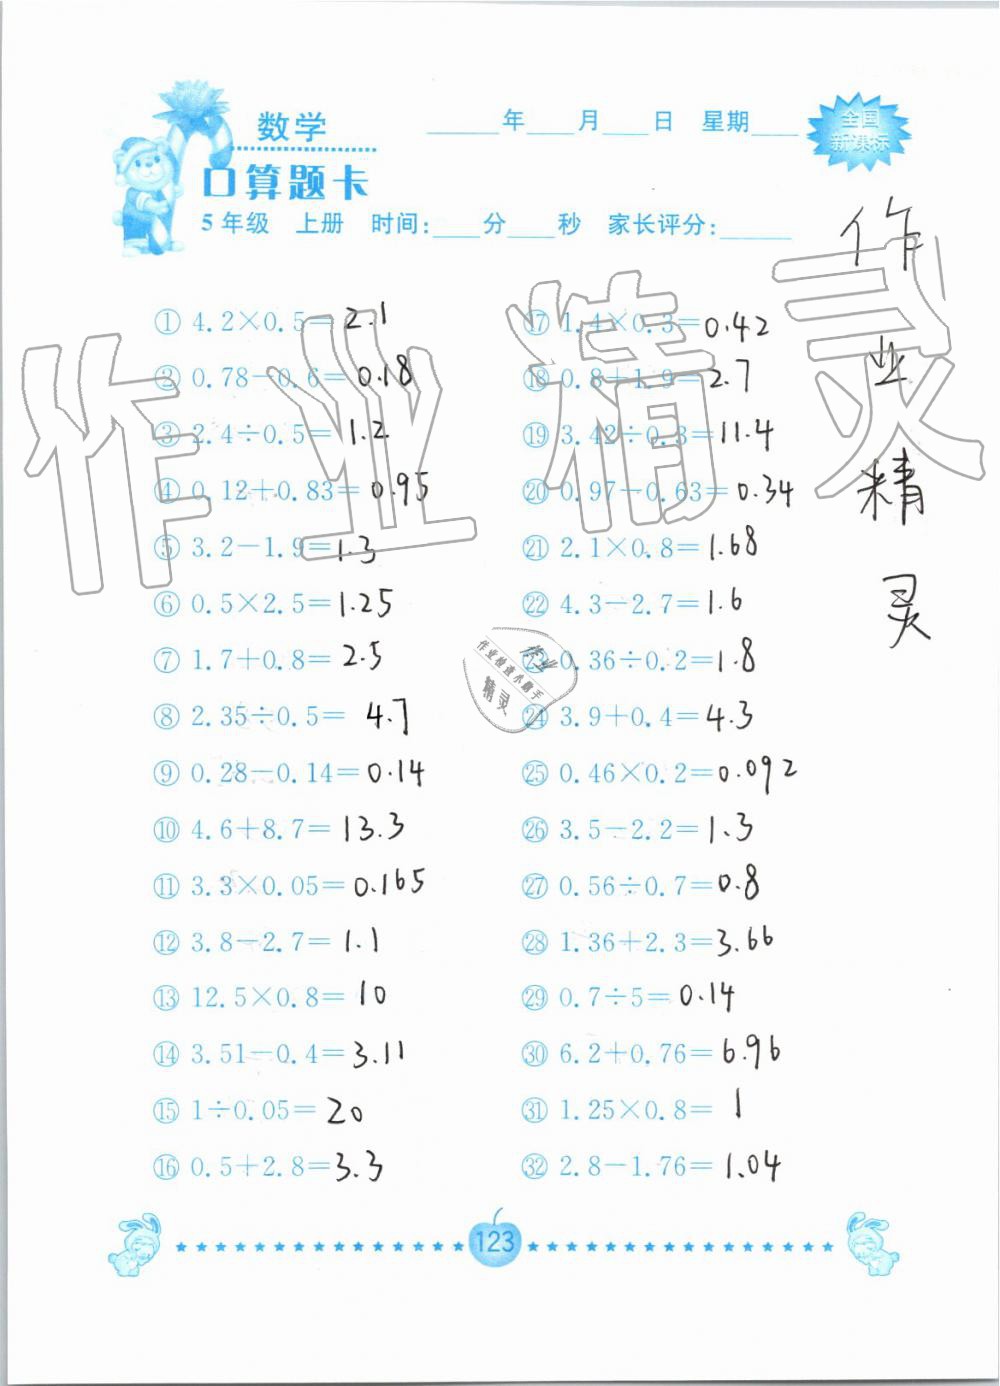 数学
____年____月____日 星期____
全国
新课标
口算题卡
5年级 上册 时间:____分____秒 家长评分:______
作业精灵
作业精灵
① 4.2×0.5=2.1
② 0.78-0.6=0.18
③ 2.4÷0.5=1.2
④ 0.12+0.83=0.95
⑤ 3.2-1.9=1.3
⑥ 0.5×2.5=1.25
⑦ 1.7+0.8=2.5
⑧ 2.35÷0.5=4.7
⑨ 0.28-0.14=0.14
⑩ 4.6+8.7=13.3
⑪ 3.3×0.05=0.165
⑫ 3.8-2.7=1.1
⑬ 12.5×0.8=10
⑭ 3.51-0.4=3.11
⑮ 1÷0.05=20
⑯ 0.5+2.8=3.3
⑰ 1.4×0.3=0.42
⑱ 0.8+1.9=2.7
⑲ 3.42÷0.3=11.4
⑳ 0.97-0.63=0.34
㉑ 2.1×0.8=1.68
㉒ 4.3-2.7=1.6
㉓ 0.36÷0.2=1.8
㉔ 3.9+0.4=4.3
㉕ 0.46×0.2=0.092
㉖ 3.5-2.2=1.3
㉗ 0.56÷0.7=0.8
㉘ 1.36+2.3=3.66
㉙ 0.7÷5=0.14
㉚ 6.2+0.76=6.96
㉛ 1.25×0.8=1
㉜ 2.8-1.76=1.04
作业
精灵
123